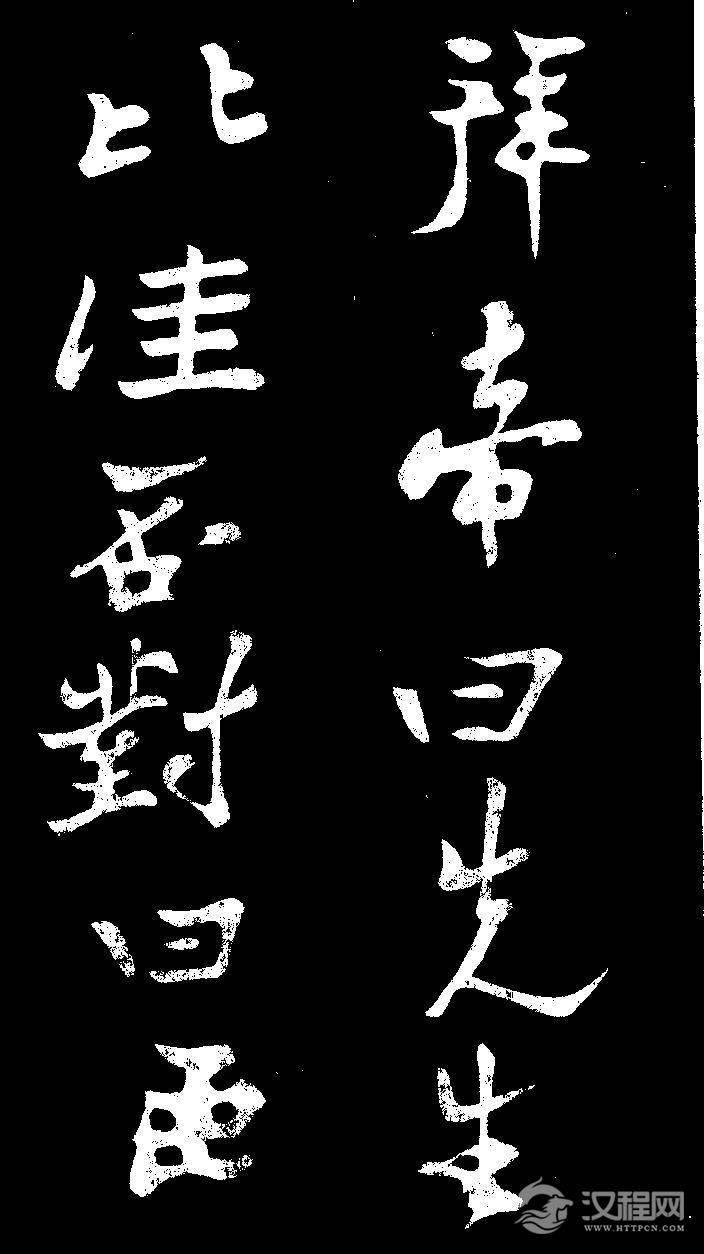 拜帝曰先生
比佳否對曰臣
汉程网
WWW.HTTPCN.COM